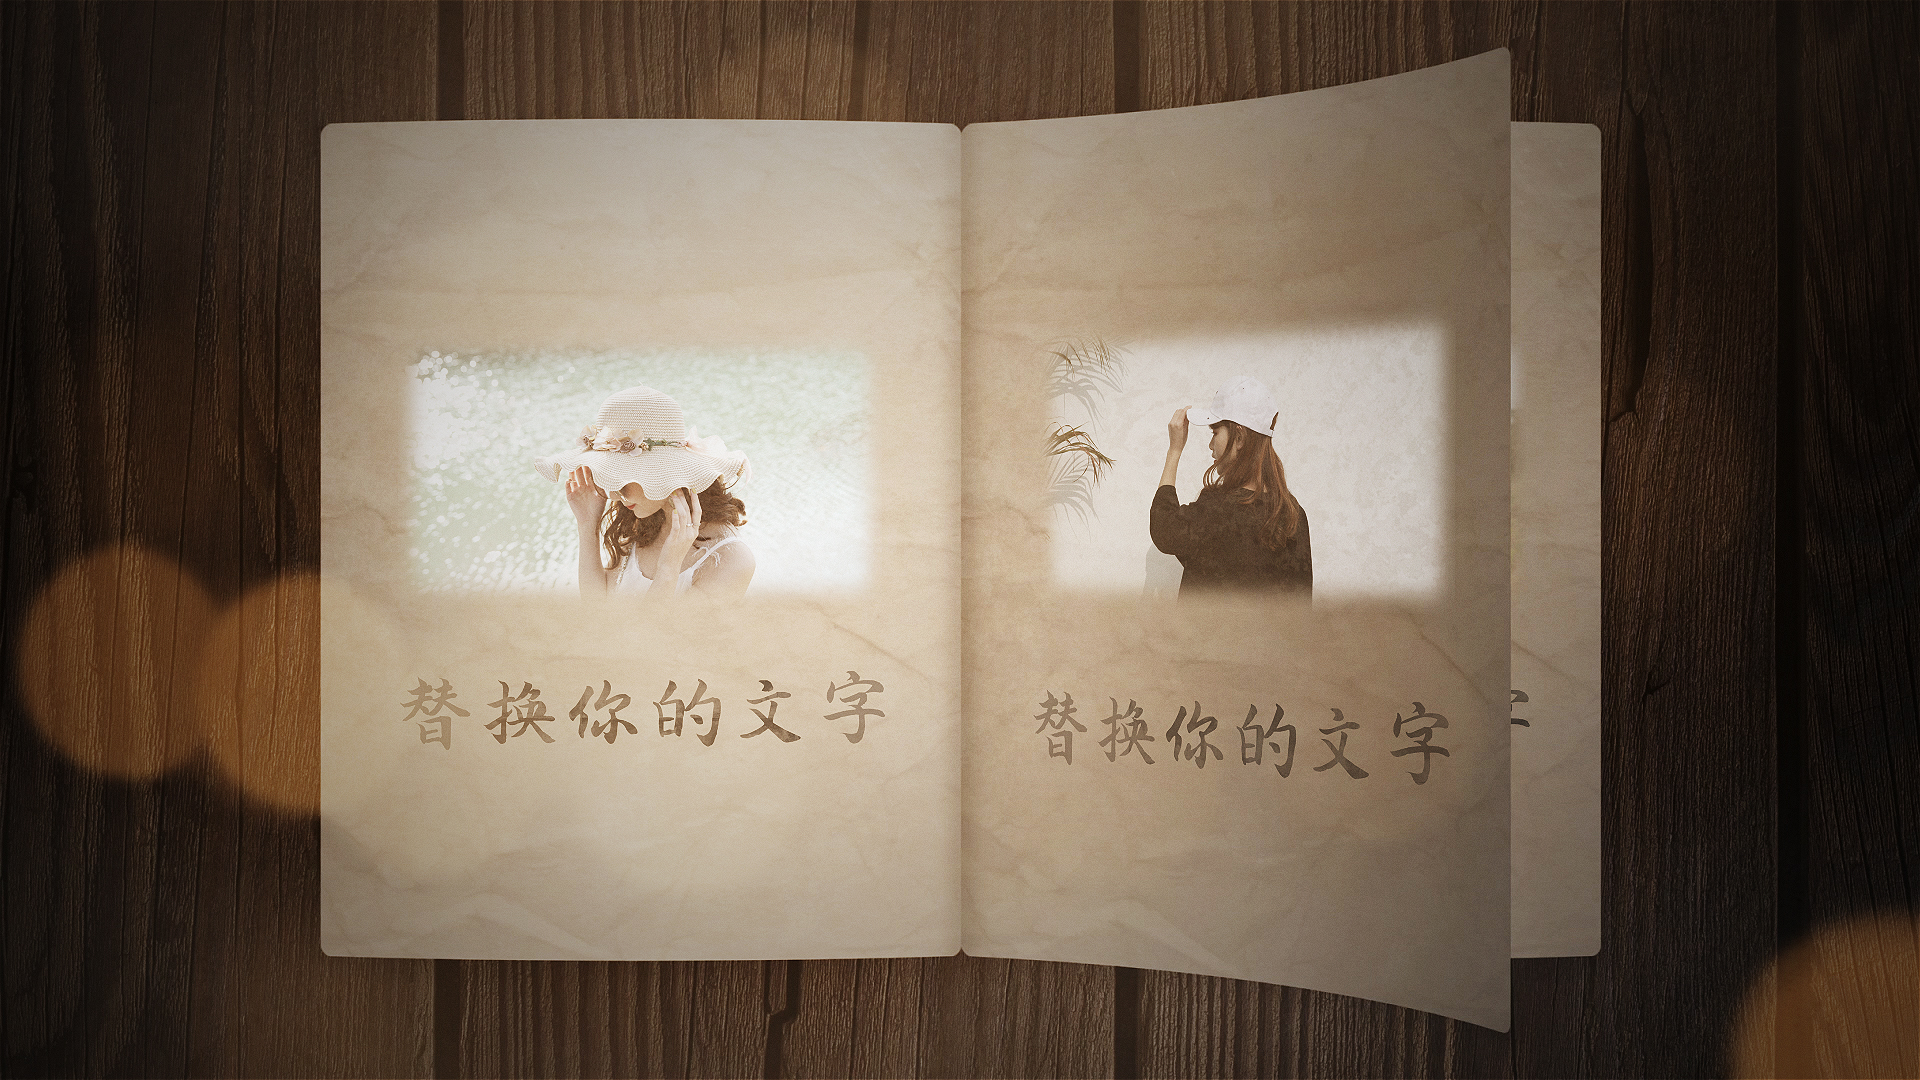 替换你的文字
替换你的文字